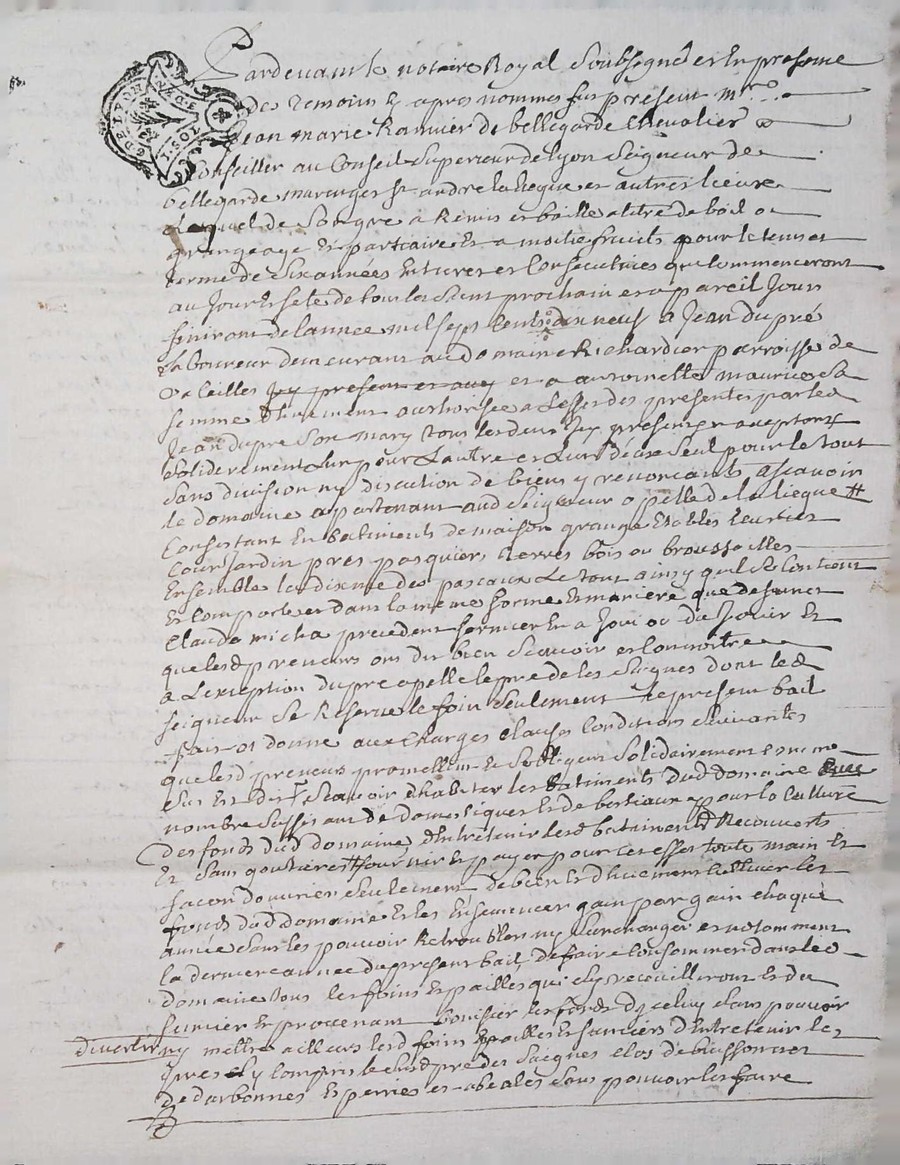 Pardevant le notaire Royal Soubsigné et En presence
de Temoins cy apres nommes fut present mre
Jean marie Rannier de bellegarde Chevalier
Conseiller au Conseil Superieur de lyon Seigneur de
bellegarde St andre la et autres lieux
Lequel de Son gre a Remis et baille a titre de bail a
grangeage Et partcaire Et a moitie fruits pour le tems et
terme de Six années Entieres et Consecutives qui Commenceront
au Jour Et fete de tous les Saint prochain et a pareil Jour
finiront de lannée mil sept Cents dix neuf a Jean dupré
laboureur demeurant au domaine Richardier parroisse de
icy present et et a antoinette maurice Sa
femme duement authorisée a Leffet des presentes par led
Jean dupre Son mary tous les deux icy presents et acceptants
Soliderement Lun pour Lautre et Lun deux Seul pour le tout
Sans division ny discution de biens y renoncants ascavoir
le domaine apartenant aud Seigneur apellé de la liegue
Consistant En batiments de maison grange Etables
Cour Jardin pres pasquiers terres bois ou broussailles
Ensemble la dixme des Le tout ainsy quil Se Contient
Et Comporte et dans la meme forme Et maniere que defunct
Claude micha precedent fermier En a Joui ou du Jouir Et
que lesd preneurs ont dit bien Scavoir et Connoitre
a Lexception du pre apellé le pre de les Sagnes dont led
Seigneur Se Reserve le foin Seulement Le present bail
fait et donné aux Charges Clauses Conditions Suivantes
que lesd preneurs promettent Et Sobligent Solidairement comme
Sus Est dit Scavoir dhabiter les Batiments dud domaine avec
nombre Suffisant de domestiques Et de bestiaux pour la Culture
des fonds dud domaine dEntretenir lesd batiments Recouverts
Et Sans goutieres fournir Et payer pour cet effet toute main Et
facon douvriers Seulement de bien Et duement Cultiver les
fonds dud domaine Et les Ensemencer gain par gain chaque
année Sans les pouvoir Retroubler ny Surcharger et notamment
la derniere année du present bail, de faire Consommer dans led
domaine tous les foins Et pailles qui Sy recueilliront Et du
fumier En provenant les fonds dyceluy Sans pouvoir
divertir ny mettre ailleurs lesd foins pailles Et fumiers dEntretenir les
pres y Compris le susd pre des Sagnes clos de buissons et
Et Sans pouvoir les faire